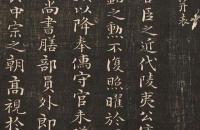 并表
臣之近代陵夷公
之勳不復照曜於
以降奉儒守官未
尚書膳部員外郎
中宗之朝高視於